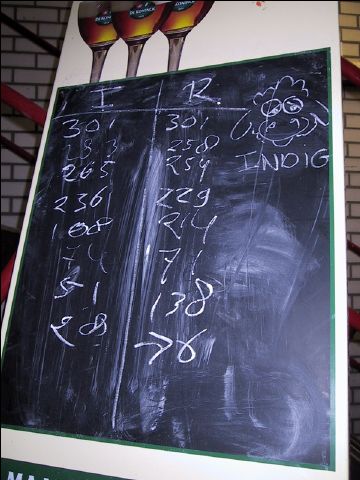 DE KONINCK DE KONINCK DE KONINCK
I R
301 301
283 258
265 254
236 229
108 214
74 171
51 138
28 76
INDIG